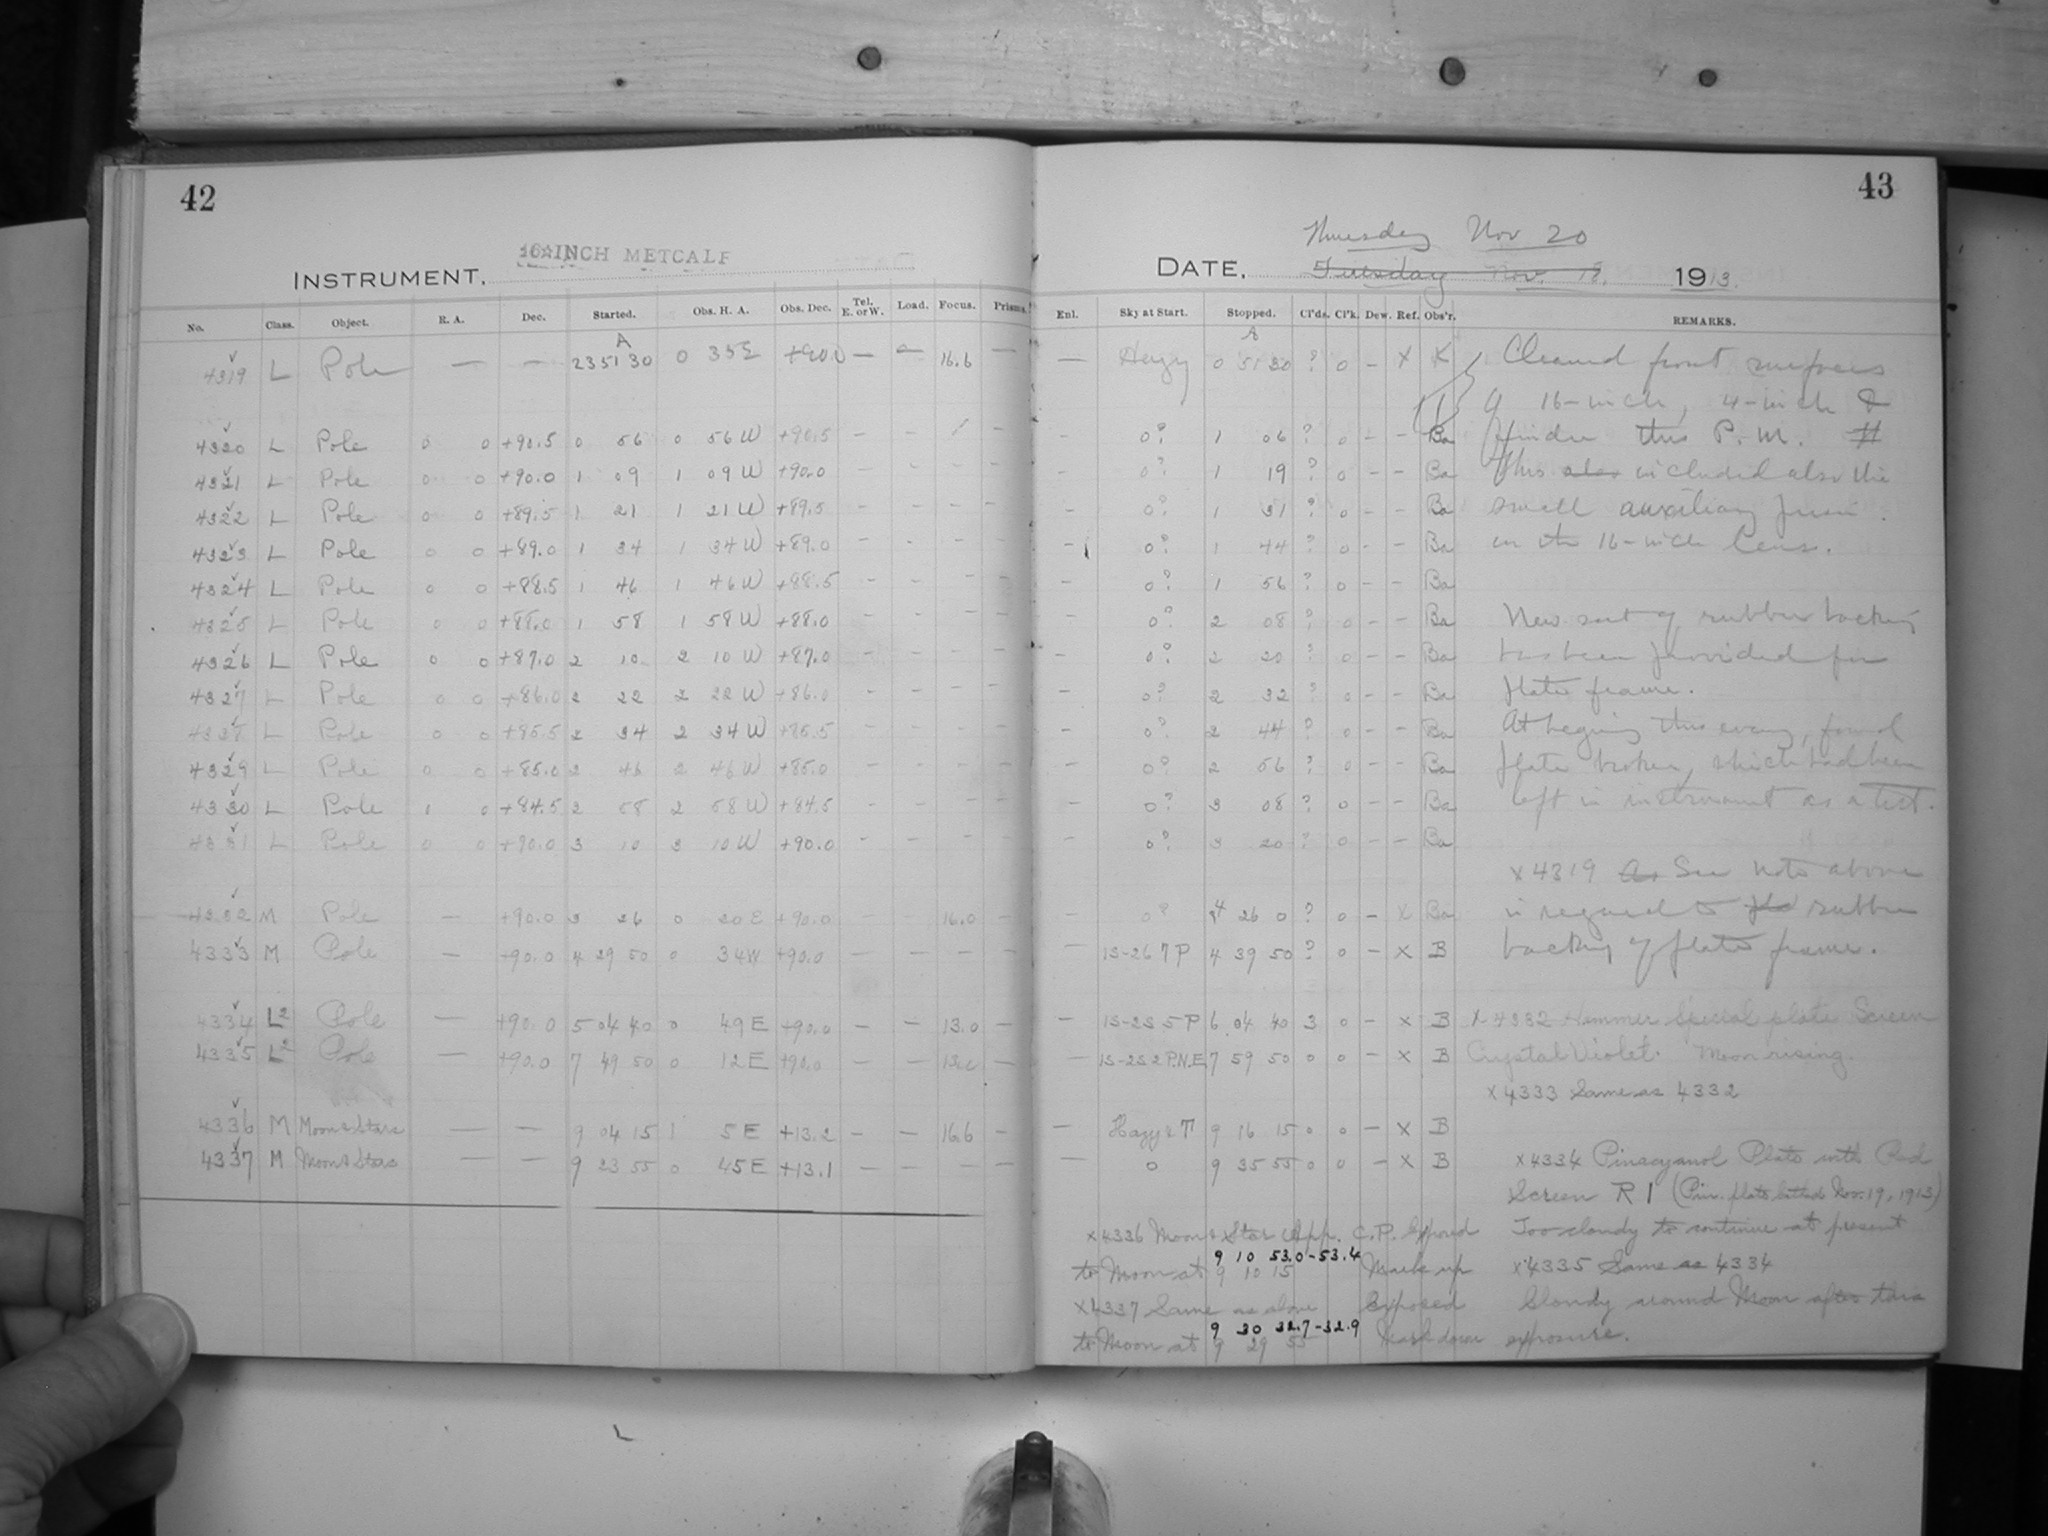 42
16 INCH METCALF
INSTRUMENT.
No. Class. Object. R. A. Dec. Started. Obs. H. A. Obs. Dec. Tel. E. or W. Load. Focus. Prisms.
A
4319 L Pole — — 23 51 30 0 35 E +90.0 — — 16.6 —
4320 L Pole 0 0 +90.5 0 56 0 56 W +90.5 — —
4321 L Pole 0 0 +90.0 1 09 1 09 W +90.0 — — — —
4322 L Pole 0 0 +89.5 1 21 1 21 W +89.5 — — — —
4323 L Pole 0 0 +89.0 1 34 1 34 W +89.0 — — — —
4324 L Pole 0 0 +88.5 1 46 1 46 W +88.5 — — — —
4325 L Pole 0 0 +88.0 1 58 1 58 W +88.0 — — — —
4326 L Pole 0 0 +87.0 2 10 2 10 W +87.0 — — — —
4327 L Pole 0 0 +86.0 2 22 2 22 W +86.0 — — — —
4328 L Pole 0 0 +85.5 2 34 2 34 W +85.5 — — — —
4329 L Pole 0 0 +85.0 2 46 2 46 W +85.0 — — — —
4330 L Pole 1 0 +84.5 2 58 2 58 W +84.5 — — — —
4331 L Pole 0 0 +90.0 3 10 3 10 W +90.0 — — — —
4332 M Pole — +90.0 3 26 0 20 E +90.0 — 16.0 —
4333 M Pole — +90.0 4 29 50 0 34 W +90.0 — — — —
4334 L2 Pole — +90.0 5 04 40 0 49 E +90.0 — — 13.0 —
4335 L2 Pole — +90.0 7 49 50 0 12 E +90.0 — — 13.0 —
4336 M Moon & Stars — — 9 04 15 1 5 E +13.2 — — 16.6 —
4337 M Moon & Stars — — 9 23 55 0 45 E +13.1 — — — —
43
Thursday Nov 20
DATE, Tuesday Nov. 18. 1913.
Enl. Sky at Start. Stopped. Cl'ds. Cl'k. Dew. Ref. Obs'r. REMARKS.
A
— Hazy 0 51 30 ? 0 — X K
— 0? 1 06 ? 0 — — Ba
— 0? 1 19 ? 0 — — Ba
— 0? 1 31 ? 0 — — Ba
— 0? 1 44 ? 0 — — Ba
— 0? 1 56 ? 0 — — Ba
— 0? 2 08 ? 0 — — Ba
— 0? 2 20 ? 0 — — Ba
— 0? 2 32 ? 0 — — Ba
— 0? 2 44 ? 0 — — Ba
— 0? 2 56 ? 0 — — Ba
— 0? 3 08 ? 0 — — Ba
— 0? 3 20 ? 0 — — Ba
— 0? 4 26 0 ? 0 — X Ba
— 1S-26 7 P 4 39 50 ? 0 — X B
— 1S-2S 5 P 6 04 40 3 0 — X B
— 1S-2S 2 P.N.E. 7 59 50 0 0 — X B
— Hazy & T 9 16 15 0 0 — X B
— 0 9 35 55 0 0 — X B
Cleaned front surfaces
of 16-inch, 4-inch &
finder this P.M. #
This also included also the
small auxiliary prism
in the 16-inch lens.
New sort of rubber backing
has been provided for
plate frame.
At beging this eveng, found
plate broken, which had been
left in instrument as a test.
X 4319 As See note above
in regard to rubber
backing of plate frame.
X 4332 Hammer Special plate Screen
Crystal Violet. Moon rising.
X 4333 Same as 4332
X 4334 Pinacyanol Plate with Red
Screen R 1 (Pin. plate bathed Nov. 19, 1913)
Too cloudy to continue at present
X 4335 Same as 4334
Cloudy around Moon after this
exposure.
X 4336 Moon & Star App. C.P. Exposed
9 10 53.0-53.4
to Moon at 9 10 15 Mark up
X 4337 Same as above Exposed
9 30 32.7-32.9
to Moon at 9 29 55 Mark down